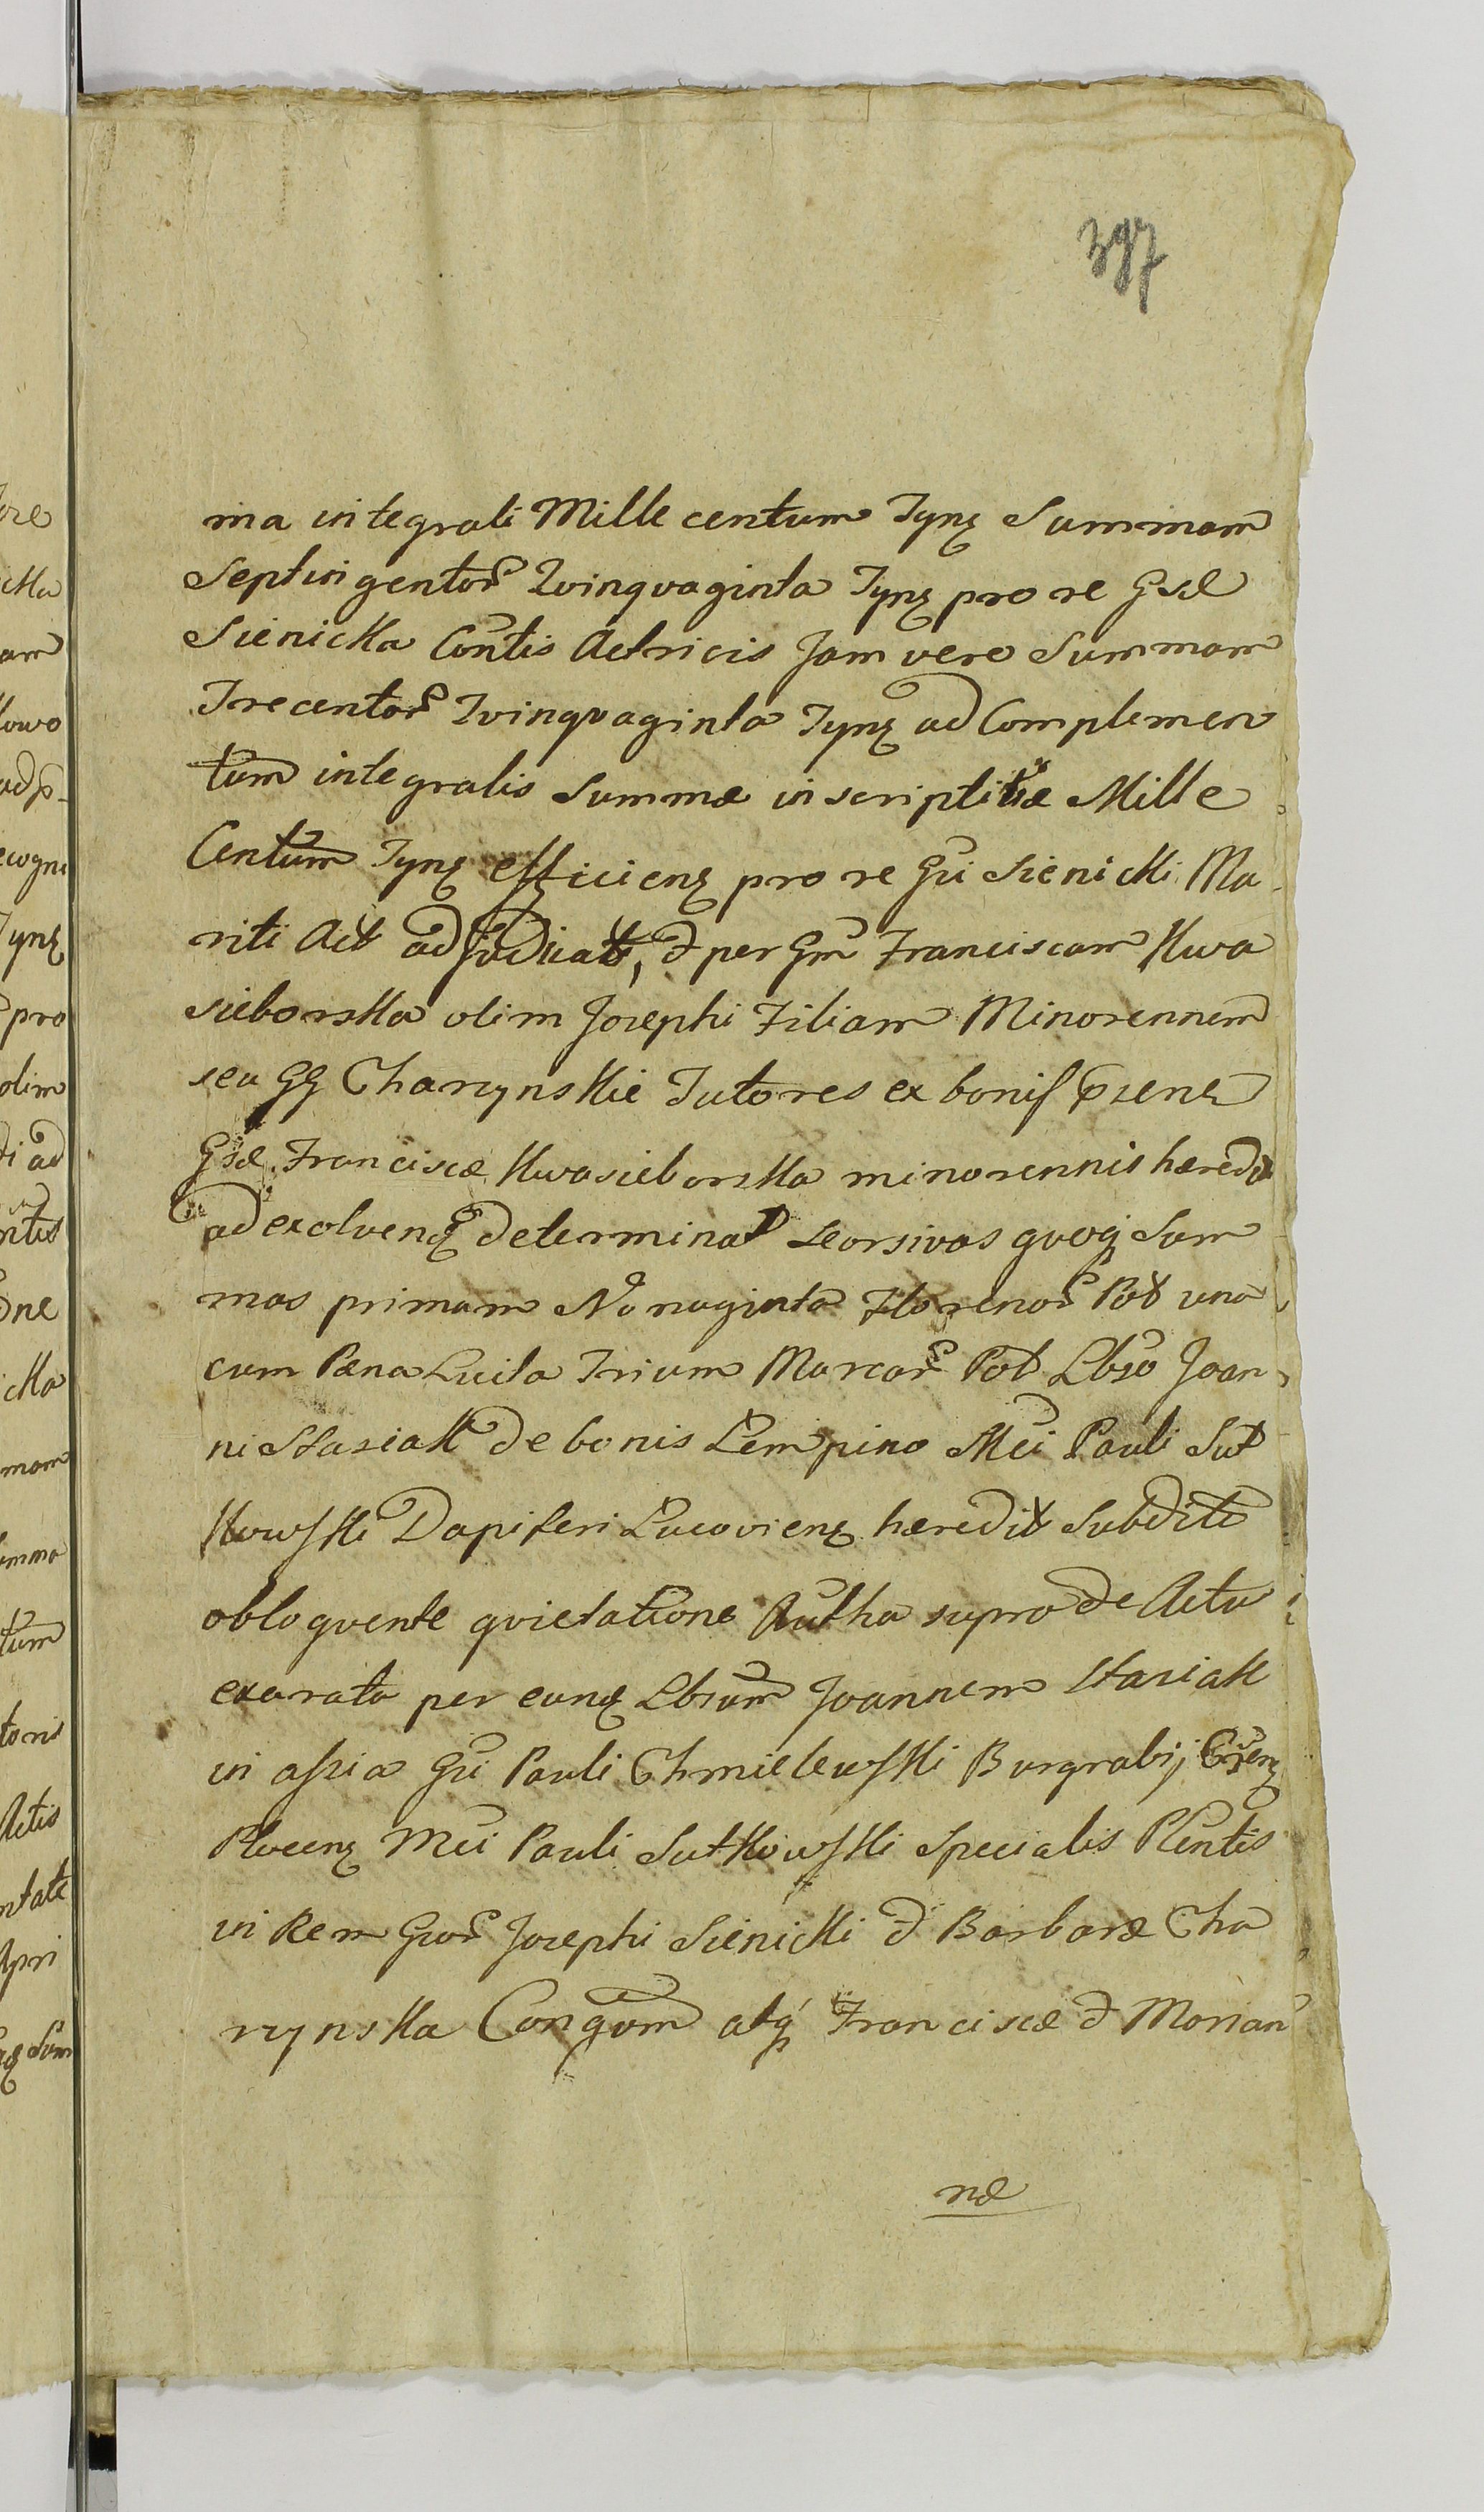 397
ma integrali Mille centum Tynę Summam
Septingentor Qvinqvaginta Tynę pro re Gsæ
Sienicka Contis Actricis Jam vero Summam
Trecentor Qvinqvaginta Tynę ad Complemen
tum integralis Summæ inscriptitiæ Mille
Centum Tynę efficienę pro re Gsi Sienicki Ma
riti Act adjudicat, & per Gm Franciscam Kwa
sieborska olim Josephi Filiam Minorennem
seu GG Charzynskie Tutores ex bonis
Gsæ Franciscæ Kwasieborska minorennis hæredit
ad exolvenę determinat Seorsivas qvoq Sum
mas primam Nonaginta Florenor Pol una
cum Pæna Luita Trium Marcar Pol Lbso Joan
ni Stasiak de bonis Lempino Mci Pauli Sut
kowski Dapiferi Lucovienę hæredit Subdito
obloqvente qvietatione Autha supra de Actu
exarata per eunę Lbsum Joannem Stasiak
in assia Gsi Pauli Chmielewski Burgrabij
Plocenę Mci Pauli Sutkowski Specialis Plentis
in Rem Gsor Josephi Sienicki & Barbaræ Cha
rzynska Congum atq Franciscæ & Marian
næ